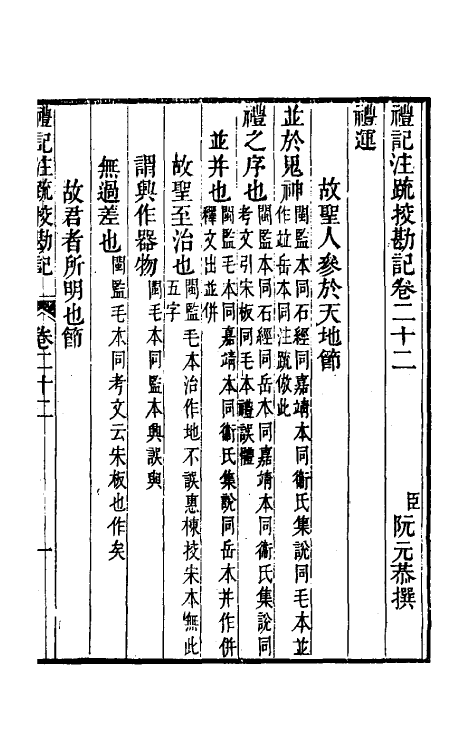 禮記注疏挍勘記卷二十二
臣阮元恭撰
禮運
故聖人參於天地節
並於鬼神 閩監本同石經同嘉靖本同衞氏集說同毛本並
作竝岳本同注疏倣此
禮之序也 閩監本同石經同岳本同嘉靖本同衞氏集說同
考文引宋板同毛本禮誤體
並并也 閩監毛本同嘉靖本同衞氏集說同岳本并作併
釋文出並併
故聖至治也 閩監毛本治作地不誤惠棟挍宋本無此
五字
謂興作器物 閩毛本同監本興誤與
無過差也 閩監毛本同考文云宋板也作矣
故君者所明也節
禮記注疏挍勘記 卷二十二 一